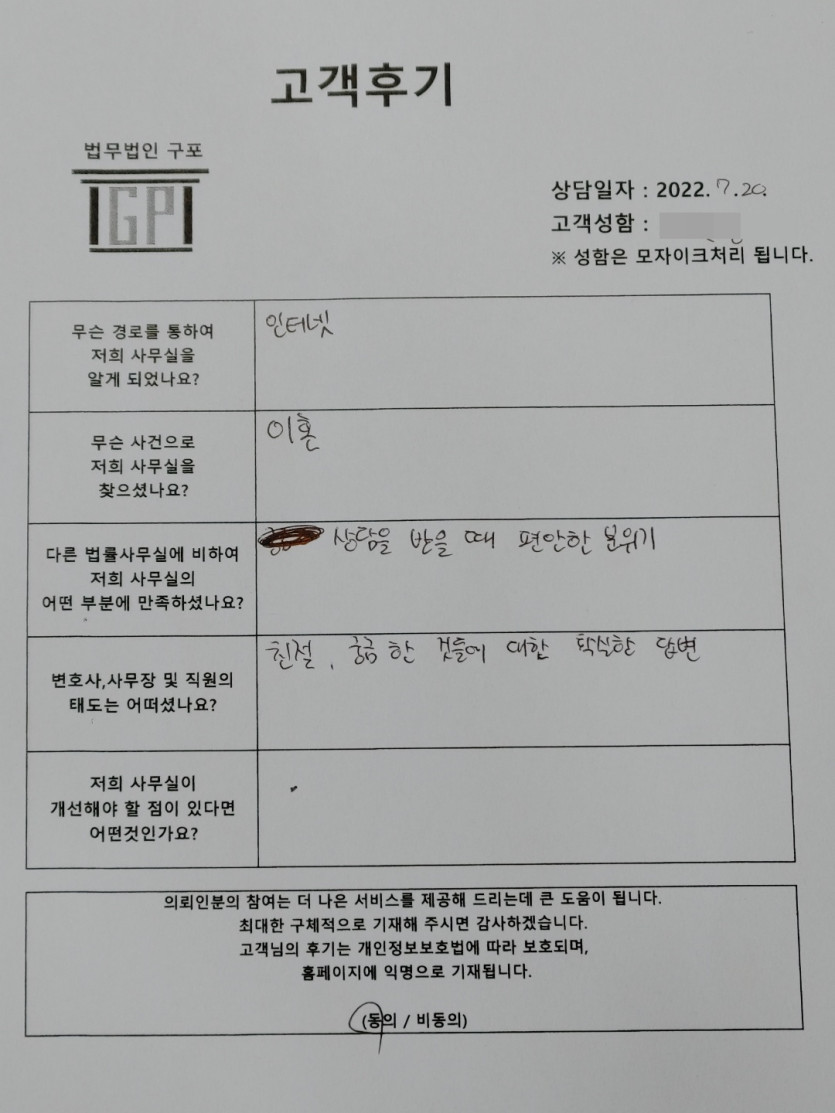 고객후기
법무법인 구포
GP
상담일자 : 2022. 7. 20.
고객성함 :
※ 성함은 모자이크처리 됩니다.
무슨 경로를 통하여
저희 사무실을
알게 되었나요?
인터넷
무슨 사건으로
저희 사무실을
찾으셨나요?
이혼
다른 법률사무실에 비하여
저희 사무실의
어떤 부분에 만족하셨나요?
상담을 받을 때 편안한 분위기
변호사,사무장 및 직원의
태도는 어떠셨나요?
친절, 궁금한 것들에 대한 확실한 답변
저희 사무실이
개선해야 할 점이 있다면
어떤것인가요?
의뢰인분의 참여는 더 나은 서비스를 제공해 드리는데 큰 도움이 됩니다.
최대한 구체적으로 기재해 주시면 감사하겠습니다.
고객님의 후기는 개인정보보호법에 따라 보호되며,
홈페이지에 익명으로 기재됩니다.
(동의 / 비동의)